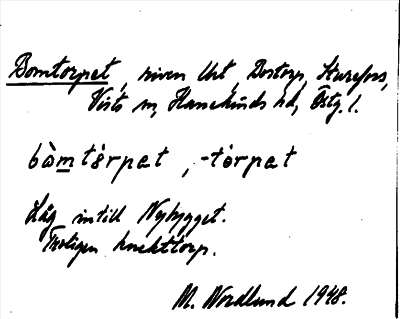 Bomtorpet, riven lht, Bostorp, Sturefors,
Vists sn, Hanekinds hd, Östg. l.
bòm̲tɵ̀rpet, -tɵ̀rpet
Låg intill Nybygget.
Troligen knekttorp.
M. Nordlund 1948.